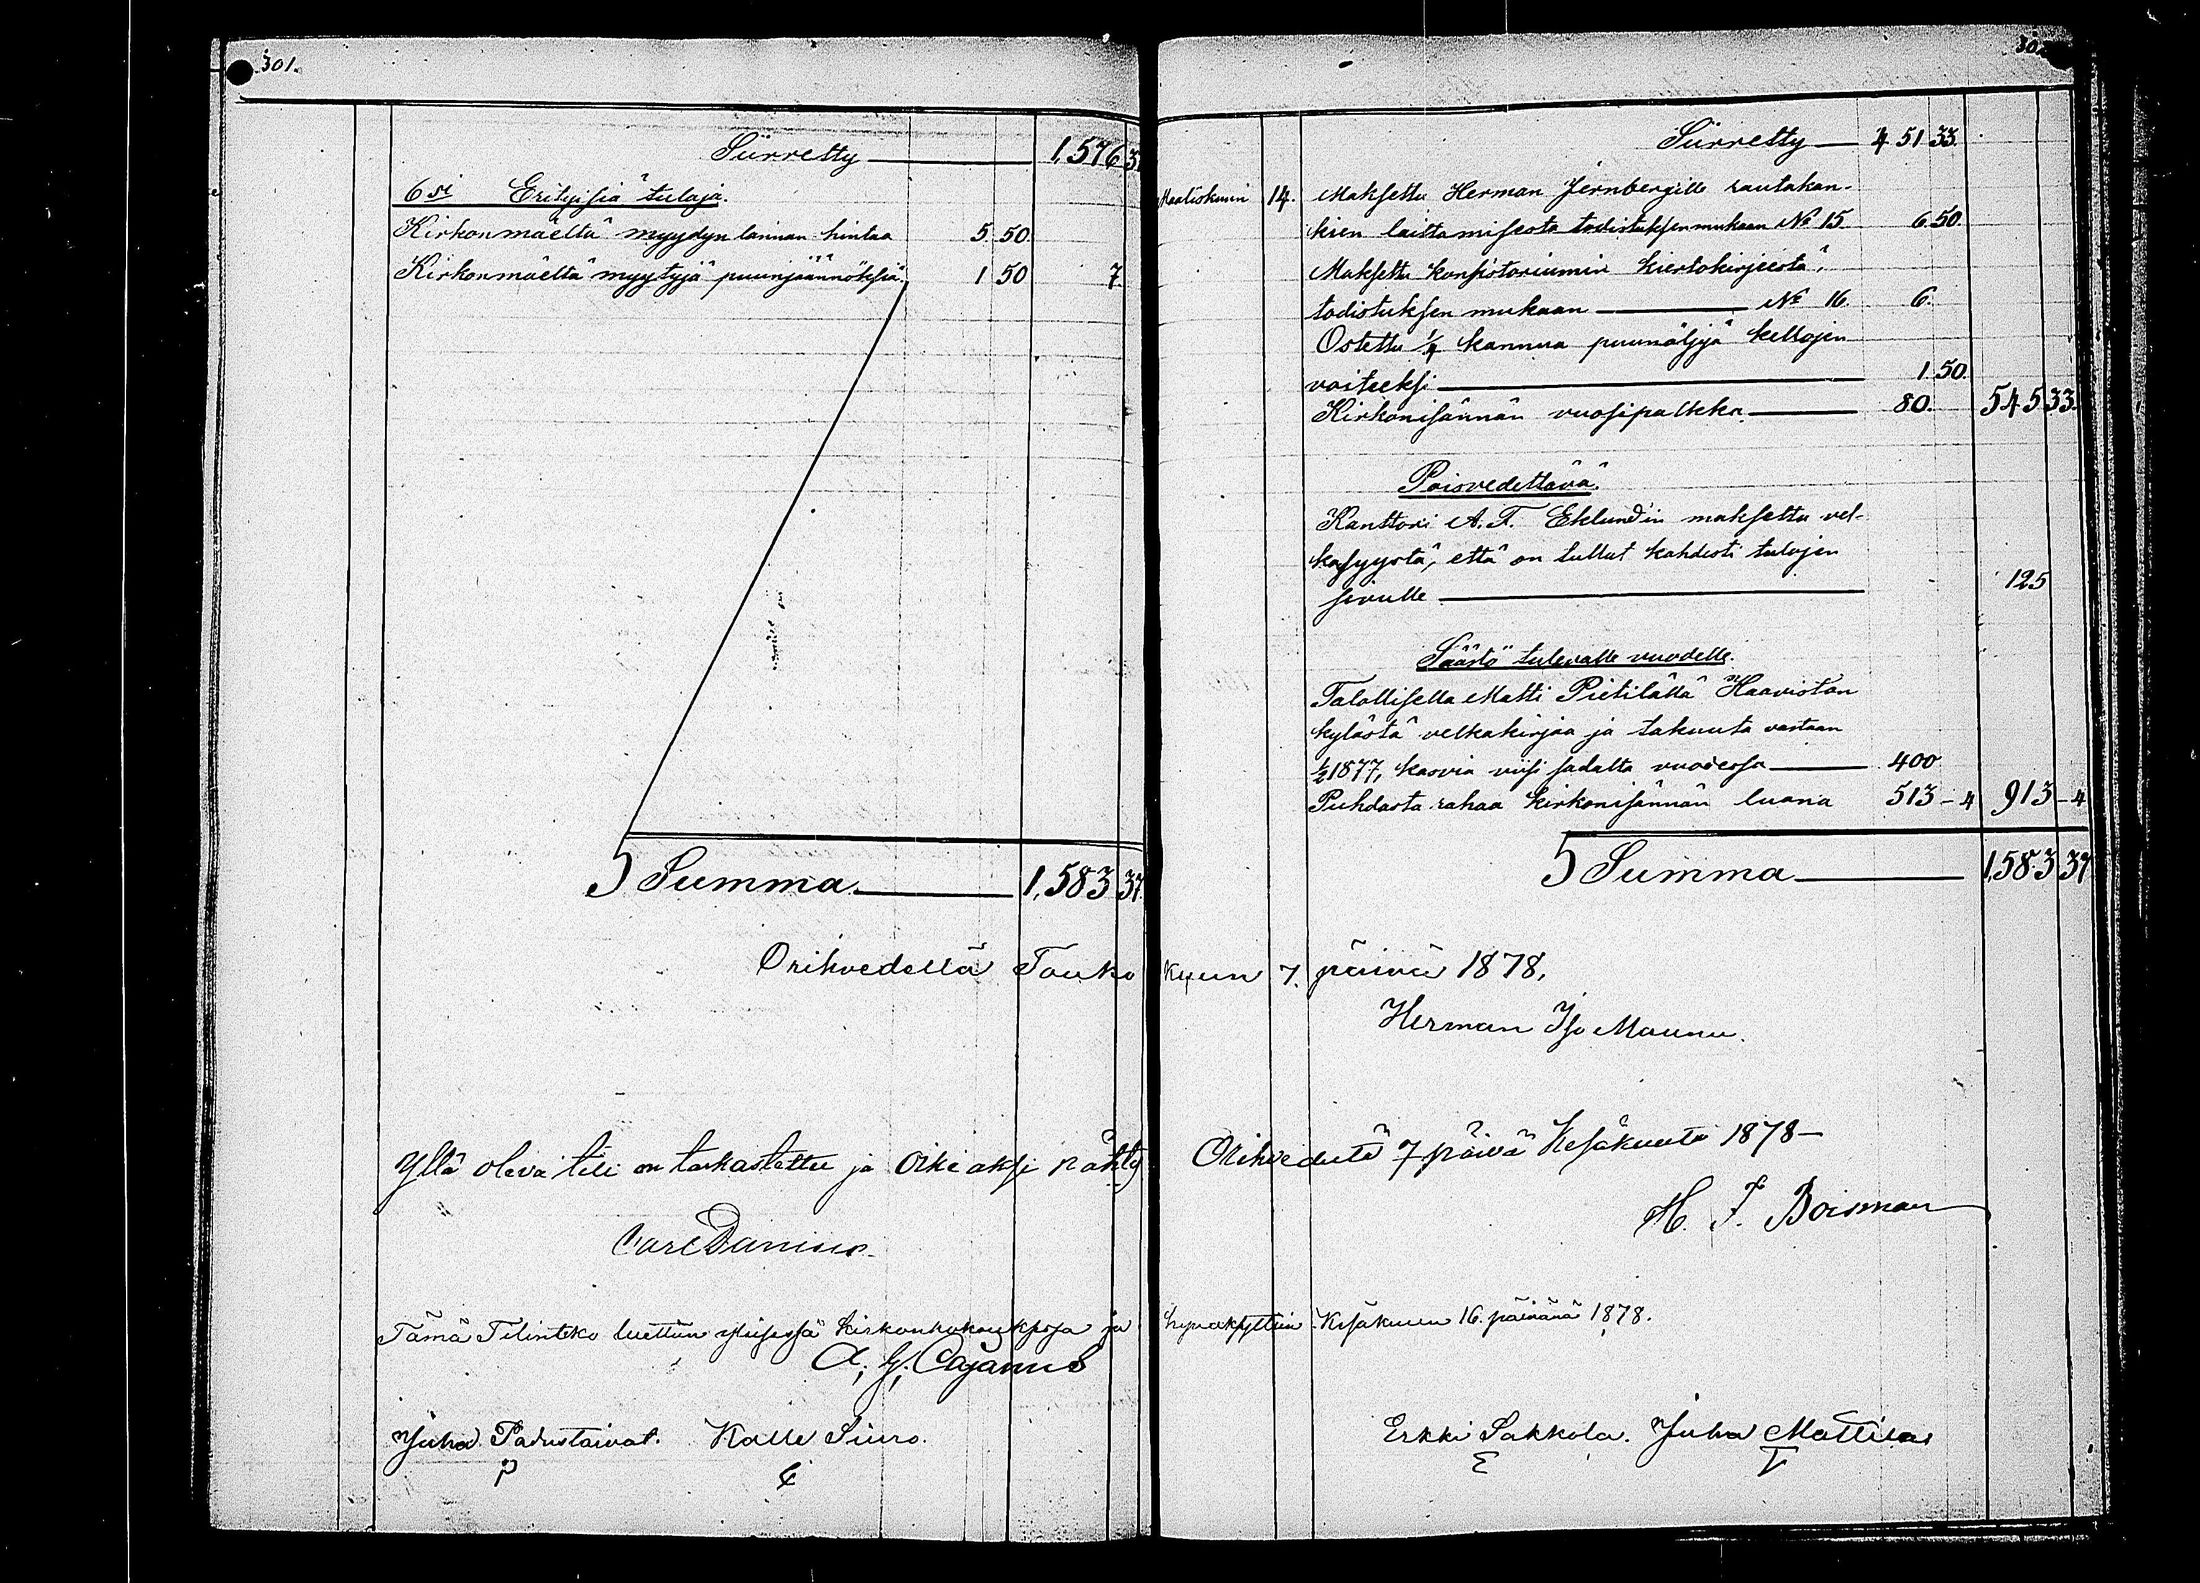 301.
Siirretty 1,576 3
6si Erityisiä tuloja.
Kirkonmäeltä myydyn lannan hintaa 5 50
Kirkonmäeltä myytyjä puunjäännöksiä. 1 50 7.
S Summa. 1,583 37
Orihvedellä Touko kuun 7. päivä 1878.
Yllä oleva tili on tarkastettu ja oikiaksi nähty
Carl Danius.
Tämä Tilinteko luettiin yleisessä kirkonkokouksessa ja
A. G. Cajanus
Juha Padustaivat. Kalle Siuro.
30
Siirretty 451 33.
Maaliskuun 14. Maksettu Herman Jernbergille rautakan-
kien laittamisesta todistuksen mukaan No 15 6 50.
Maksettu konsistoriumin kiertokirjeestä,
todistuksen mukaan No 16. 6.
Ostettu 1/4 kannua puunöljyä kellojen
voiteeksi 1 50.
Kirkonisännän vuosipalkka 80. 545 33.
Poisvedettävä.
Kanttori A. F. Eklundin maksettu vel-
ka syystä, että on tullut kahdesti tulojen
sivulle 125
Säästö tulevalle vuodelle.
Talollisella Matti Pietilällä Haaviston
kylästä velkakirjaa ja takuuta vastaan
1/2 1877, kasvia viisi sadalta vuodessa 400
Puhdasta rahaa kirkonisännän luona 513 - 4 913 - 4
S Summa 1,583 37
Herman Iso Maunu.
Orihvedestä 7 päivä Kesäkuuta 1878 -
H. F. Boisman
hyväksyttiin Kesäkuun 16. päivänä 1878.
Erkki Sakkola. Juha Mattila